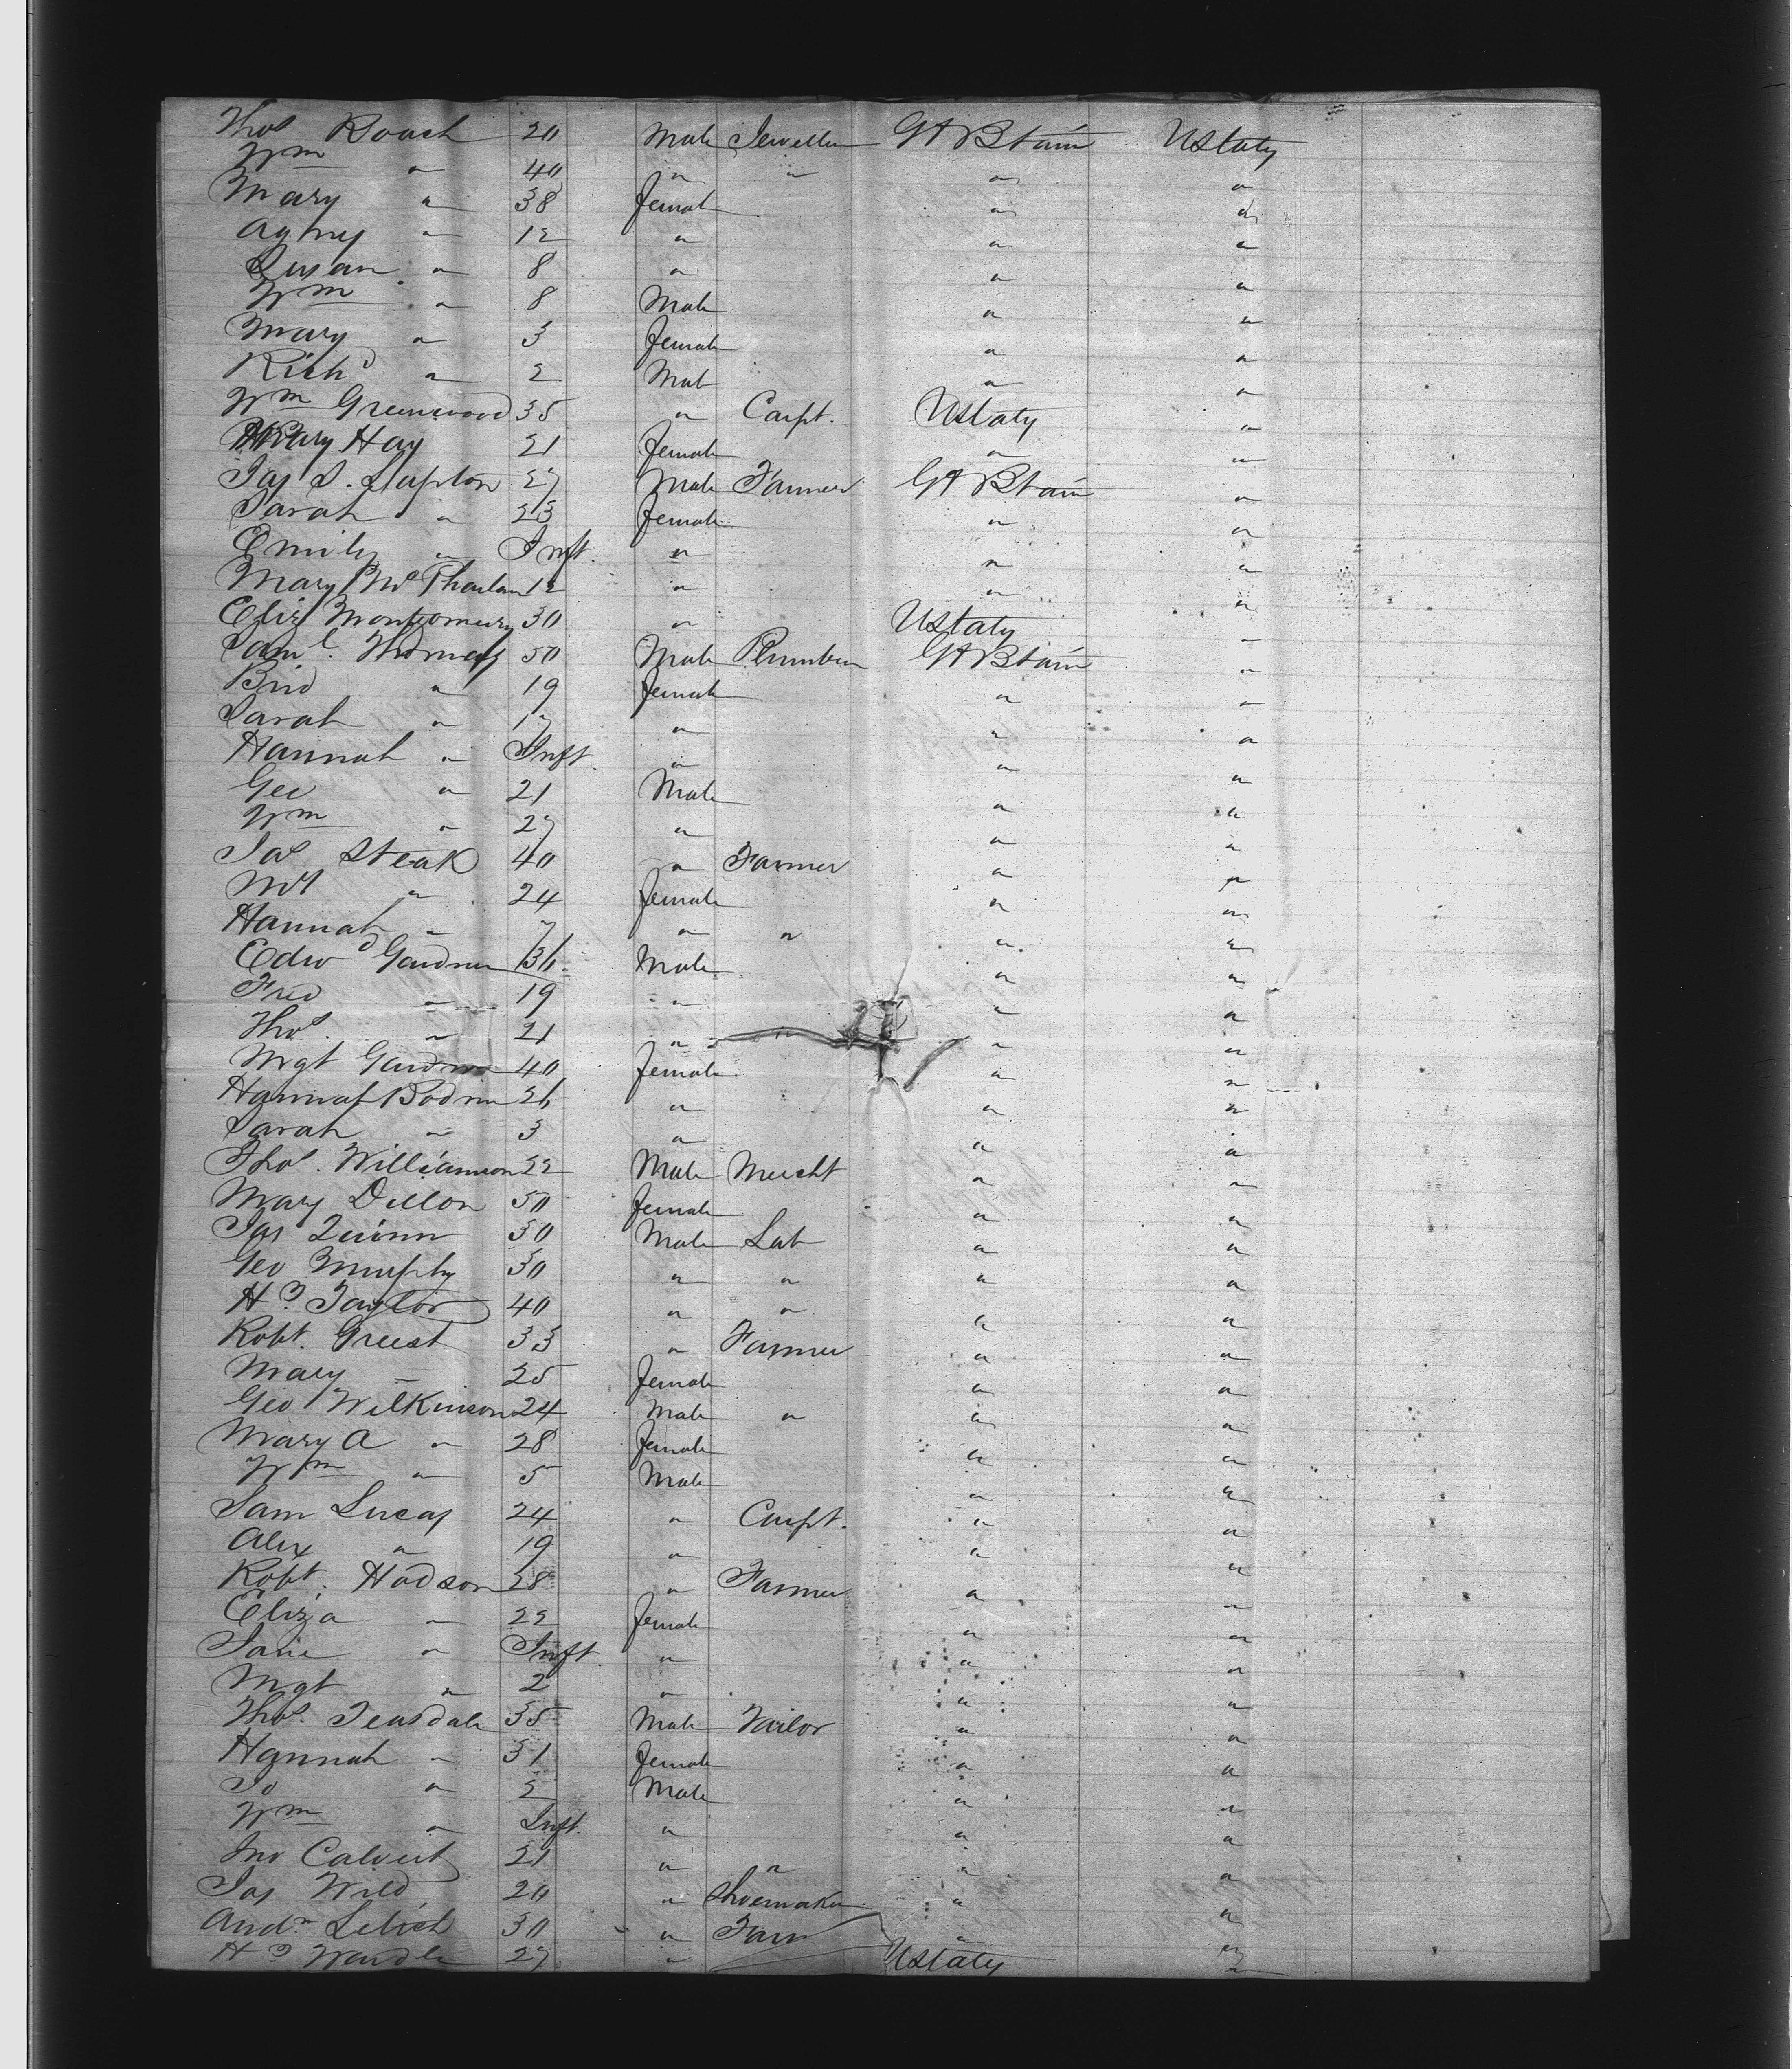 Thos Roach 20 Male Jeweller Gt Btain UStates
Wm " 40 " " " "
Mary " 38 female " "
Agnes " 12 " " "
Susan " 8 " " "
Wm " 8 Male " "
Mary " 3 female " "
Richd " 2 Male " "
Wm Greenwood 35 " Carpt. UStates "
Mary Hay 21 female " "
Jas S. Slapton 27 Male Farmer Gt Btain "
Sarah " 23 female " "
Emily " Inft. " " "
Mary McPharlan 12 " " "
Eliz Montgomery 30 " UStates "
Saml. Thomas 50 Male Plumber Gt Btain "
Brid " 19 female " "
Sarah " 17 " " "
Hannah " Inft. " " "
Geo " 21 Male " "
Wm " 27 " " "
Jas Steak 40 " Farmer " "
Mgt " 24 female " "
Hannah " 7 " " " "
Edwd Gardner 36 Male " "
Fred " 19 " " "
Thos. " 21 " " " "
Mgt Gardner 40 female " "
Hannah Bodrin 26 " " "
Sarah " 3 " " "
Thos. Williamson 22 Male Mercht " "
Mary Dillon 50 female " "
Jas Quinn 30 Male Lab " "
Geo Murphy 30 " " " "
Hy Taylor 40 " " " "
Robt. Greest 33 " Farmer " "
Mary " 25 female " "
Geo Wilkinson 24 Male " " "
Mary A " 28 female " "
Wm " 5 Male " "
Sam Lucas 24 " Carpt. " "
Alex " 19 " " "
Robt. Hodson 28 " Farmer " "
Eliza " 22 female " "
Jane " Inft. " " "
Mgt " 2 " " "
Thos. Teasdale 35 Male Tailor " "
Hannah " 31 female " "
Jo " 2 Male " "
Wm " Inft. " " "
Jno Calvert 21 " " " "
Jas Wild 20 " Shoemaker " "
Andw Leitch 30 " Farm " "
Hy Wandle 27 " UStates "